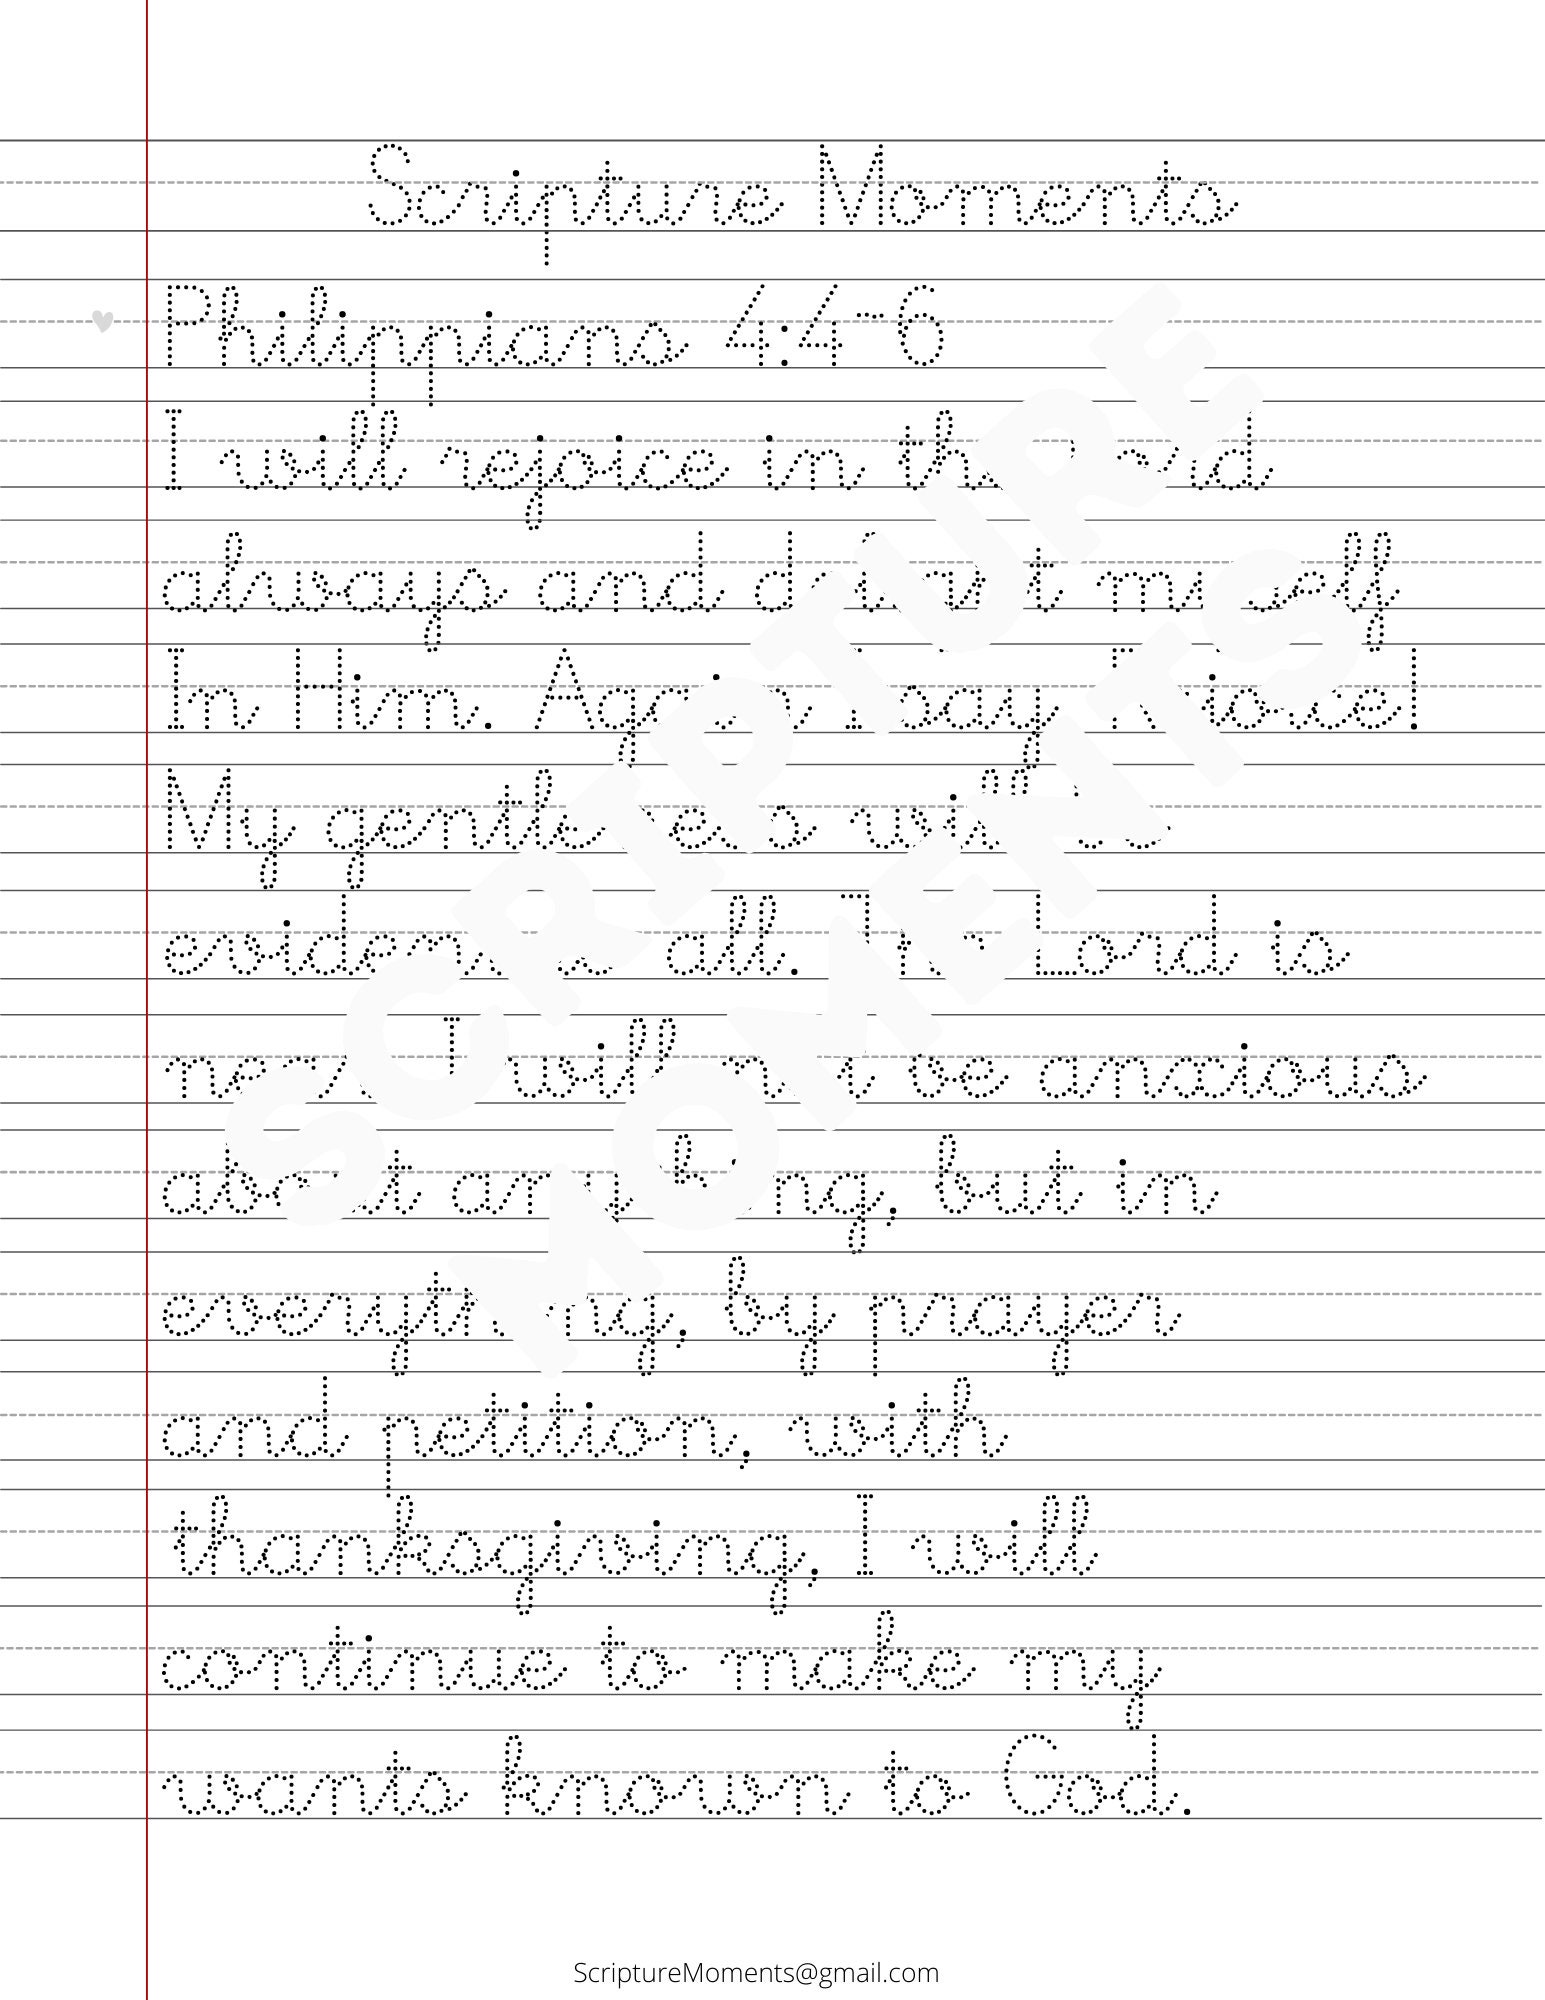 Scripture Moments
Philippians 4:4-6
I will rejoice in the Lord
always and delight myself
In Him. Again I say Rejoice!
My gentleness will be
evident to all. The Lord is
near. I will not be anxious
about anything, but in
everything, by prayer
and petition, with
thanksgiving, I will
continue to make my
wants known to God.
SCRIPTURE
MOMENTS
ScriptureMoments@gmail.com